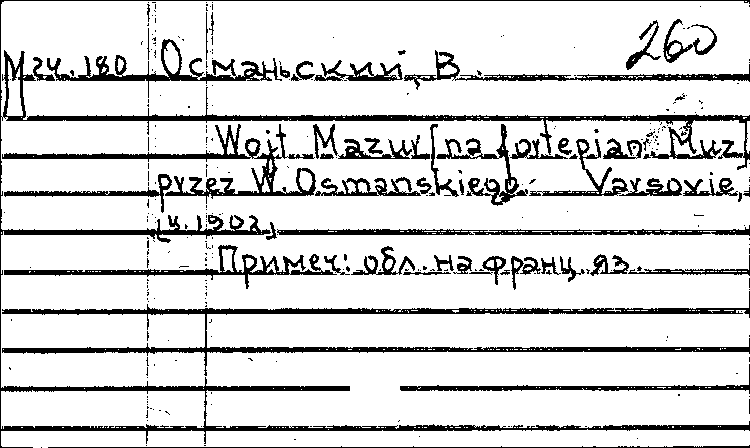 260
М гч.180 Османьский, В.
Wojt Mazur [na fortepian. Muz]
przez W. Osmanskiego. Varsovie,
[ц.1902]
Примеч: обл. на франц. яз.